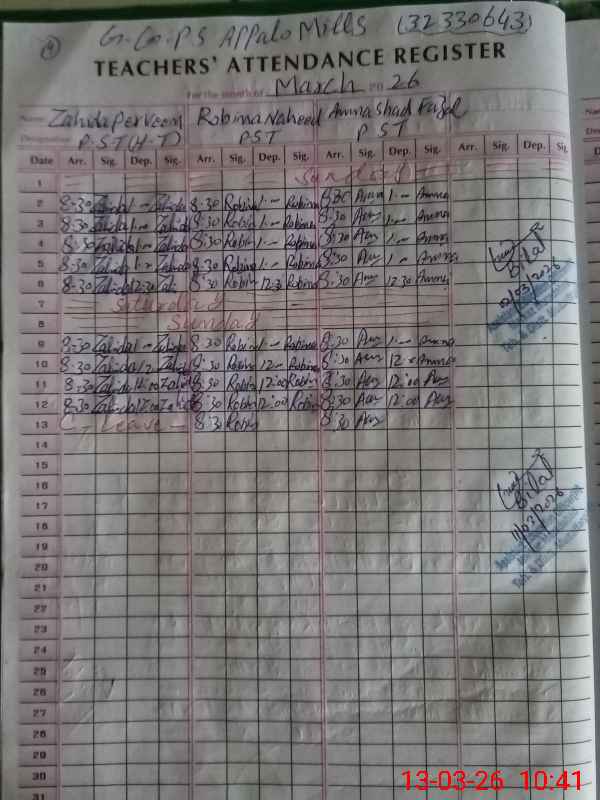 G.G.P.S Appalo Mills (32330643)
TEACHERS' ATTENDANCE REGISTER
For the month of March 2026
Name Zahida Perveen Robina Naheed Amna Shad Fazal
Designation P.S.T (H.T) P.S.T P S T
Date Arr. Sig. Dep. Sig. Arr. Sig. Dep. Sig. Arr. Sig. Dep. Sig. Arr. Sig. Dep. Sig.
1 Sunday
2 8:30 Zahida 1:- Zahida 8:30 Robina 1:- Robina 8:30 Amna 1:- Amna
3 8:30 Zahida 1:- Zahida 8:30 Robin 1:- Robina 8:30 1:- Amna
4 8:30 Zahida 1:- Zahida 8:30 Robin 1:- Robina 8:30 1:- Amna
5 8:30 Zahida 1:- Zahida 8:30 Robin 1:- Robina 8:30 1:- Amna
6 8:30 Zahida 12:30 8:30 Robin 12:30 Robina 8:30 12:30 Amna
7 Saturday
8 Sunday
9 8:30 Zahida 1:- Zahida 8:30 Robin 1:- Robina 8:30 1:- Amna
10 8:30 Zahida 12:- Zahida 8:30 Robin 12:- Robina 8:30 Amna
11 8:30 Zahida 12:00 Zahida 8:30 Robin 12:00 Robin 8:30 12:00
12 8:30 Zahida 12:00 Zahida 8:30 Robin 12:00 Robin 8:30 12:00
13 C-Leave - 8:30 Robin 8:30
14
15
16
17
18
19
20
21
22
23
24
25
26
27
28
29
30
31
Bilal
02/03/2026
Bilal
11/03/2026
13-03-26 10:41